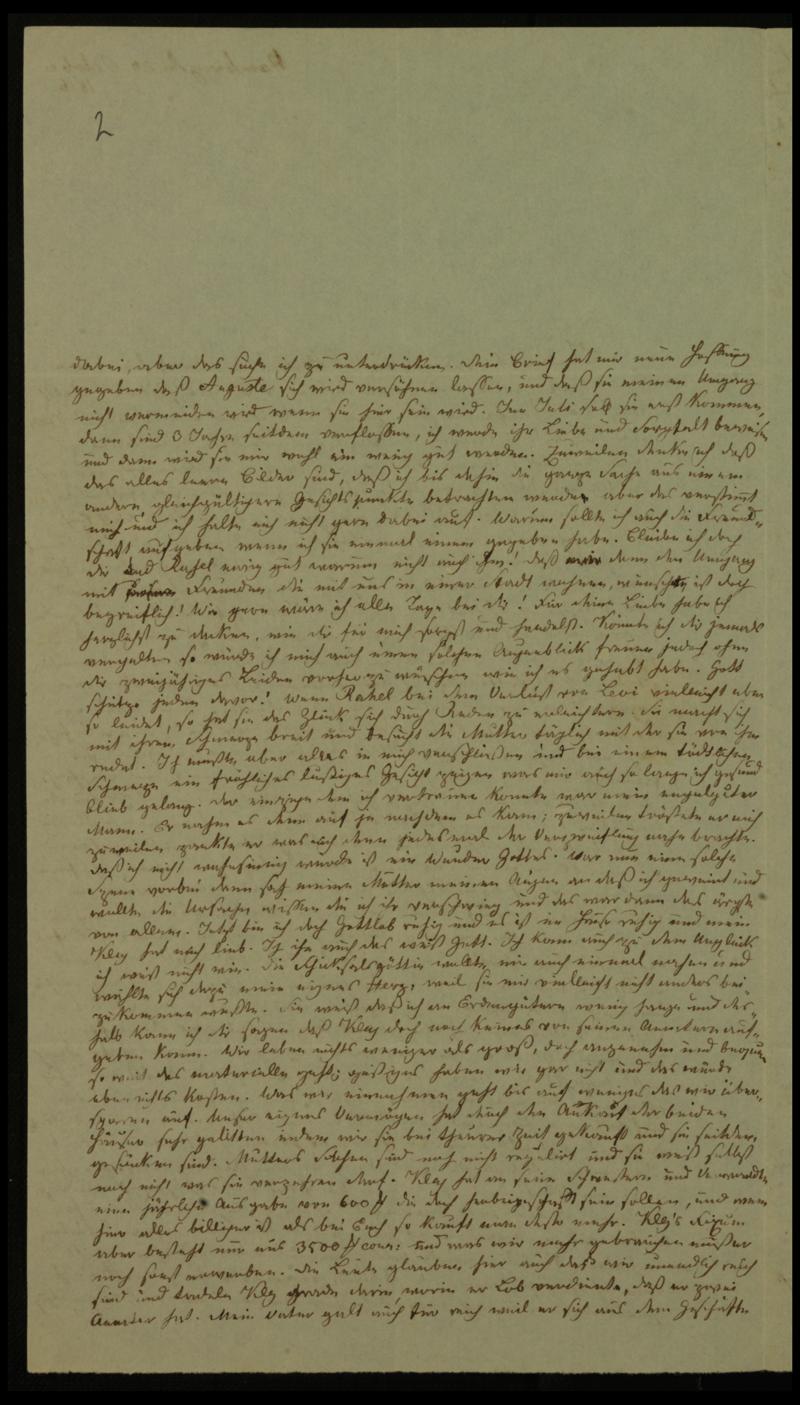 2
dabei, aber das suche ich zu unterdrücken. Dein Brief hat mir neue Hoffnung
gegeben daß Auguste sich wird versöhnen lassen, und daß sie meinen Umgang
nicht vermeiden wird wenn sie hier sein wird. Im Juli soll sie erst kommen,
dann sind 3 Jahre seitdem verflossen, ich werde ihr Liebe und Sorgfalt beweisen
und dann wird sie mir wohl ein wenig gut werden. Zuweilen denke ich daß
das alles leere Bilder sind, daß ich bis dahin die ganze Sache aus einem
andern, gleichgültigern Gesichtspunkte betrachten werde, aber das verstimmt
mich und ich halte mich nicht gern dabei auf. Warum sollte ich auch die Freund-
schaft aufgeben wenn ich sie einmal einem gegeben habe. Bleibe ich doch
dir und Rahel ewig gut warum nicht auch ihr! daß man dann den Umgang
mit Freunden die mit uns in einer Stadt wohnen, wünscht, ist doch
begreiflich! Wie gern wäre ich alle Tage bei dir! Für deine Liebe habe ich
herzlichst zu danken, wie du für mich sorgst und handelst. Könnte ich dir jemals
vergelten so würde ich mich auch eines solchen Augenblicks freuen jedoch ohne
dir zweijähriges Leiden vorher zu wünschen wie ich es gehabt habe. Gott
schütze jeden davor! Wenn Rahel bei dem Verlust von Levi vielleicht eben
so leidet, so hat sie das Glück sich durch Reden zu erleichtern. Sie macht sich
mit ihrem Schmerze breit und besucht die Mutter täglich mit der sie von ihm
redet. Ich mußte aber alles in mich verschließen und bei einem tödtlichen
Schmerze ein fröhliches lustiges Gesicht zeigen was mir auch so lange ich gesund
blieb gelang. Der einzige dem ich vertrauen konnte war mein engelguter
Mann. Er nahm es denn auf je nachdem es kam; zuweilen tröstete er mich
zuweilen zankte er was mich denn jedesmal der Verzweiflung nahe brachte.
Daß ich nicht wahnsinnig wurde ist ein Wunder Gottes. War nun eine solche
Szene vorbei dann sah meine Mutter meinen Augen an daß ich geweint und
wollte die Ursachen wissen die ich ihr verschwieg und das war dann das ärgste
von allem. Jetzt bin ich doch Gottlob ruhig und es ist im Hause ruhig und mein
Kley hat mich lieb. Ich ihn auch das weiß Gott. Ich kam auch zu dem Unglück
ich weiß nicht wie. Die Schicksalsgöttin wollte mir auch einmal nahen und
wählte sich dazu mein eignes Herz, weil sie mir vielleicht nicht anders bei-
zukommen wußte. Sie weiß daß ich an Erdengütern wenig hange und des-
halb kann ich dir sagen daß Kley doch noch keines von seinen Aemtern auf-
geben kann. Wir leben nichts weniger als groß, doch angenehm und bequem
so weit das materielle geht; geistiges haben wir gar nicht und das würde
eben nichts kosten. Was wir einnehmen geht bis auf weniges das wir über-
sparen auf. Unser eignes Vermögen hat durch den Ankauf der beiden
Häuser sehr gelitten indem wir sie bei theurer Zeit gekauft und sie seitdem
gesunken sind. Mutters Sachen sind noch nicht regulirt und sie weiß selbst
noch nicht was sie verzehren darf. Kley hat an seine Schwestern und Verwandte
eine jährliche Ausgabe von 600 die doch herbeigeschafft sein sollen, und wenn
hier alles billiger ist als bei Euch so kauft man desto mehr. Kley's Fixum
aber besteht nur aus 3500 cour: und was wir mehr gebrauchen müssen
noch sonst erwerben. Die Leute glauben hier auch daß wir unendlich reich
sind und tadeln Kley grade darin worin er Lob verdiente, daß er zwei
Aemter hat. Mein Vater galt auch für reich weil er sich aus dem Geschäfte